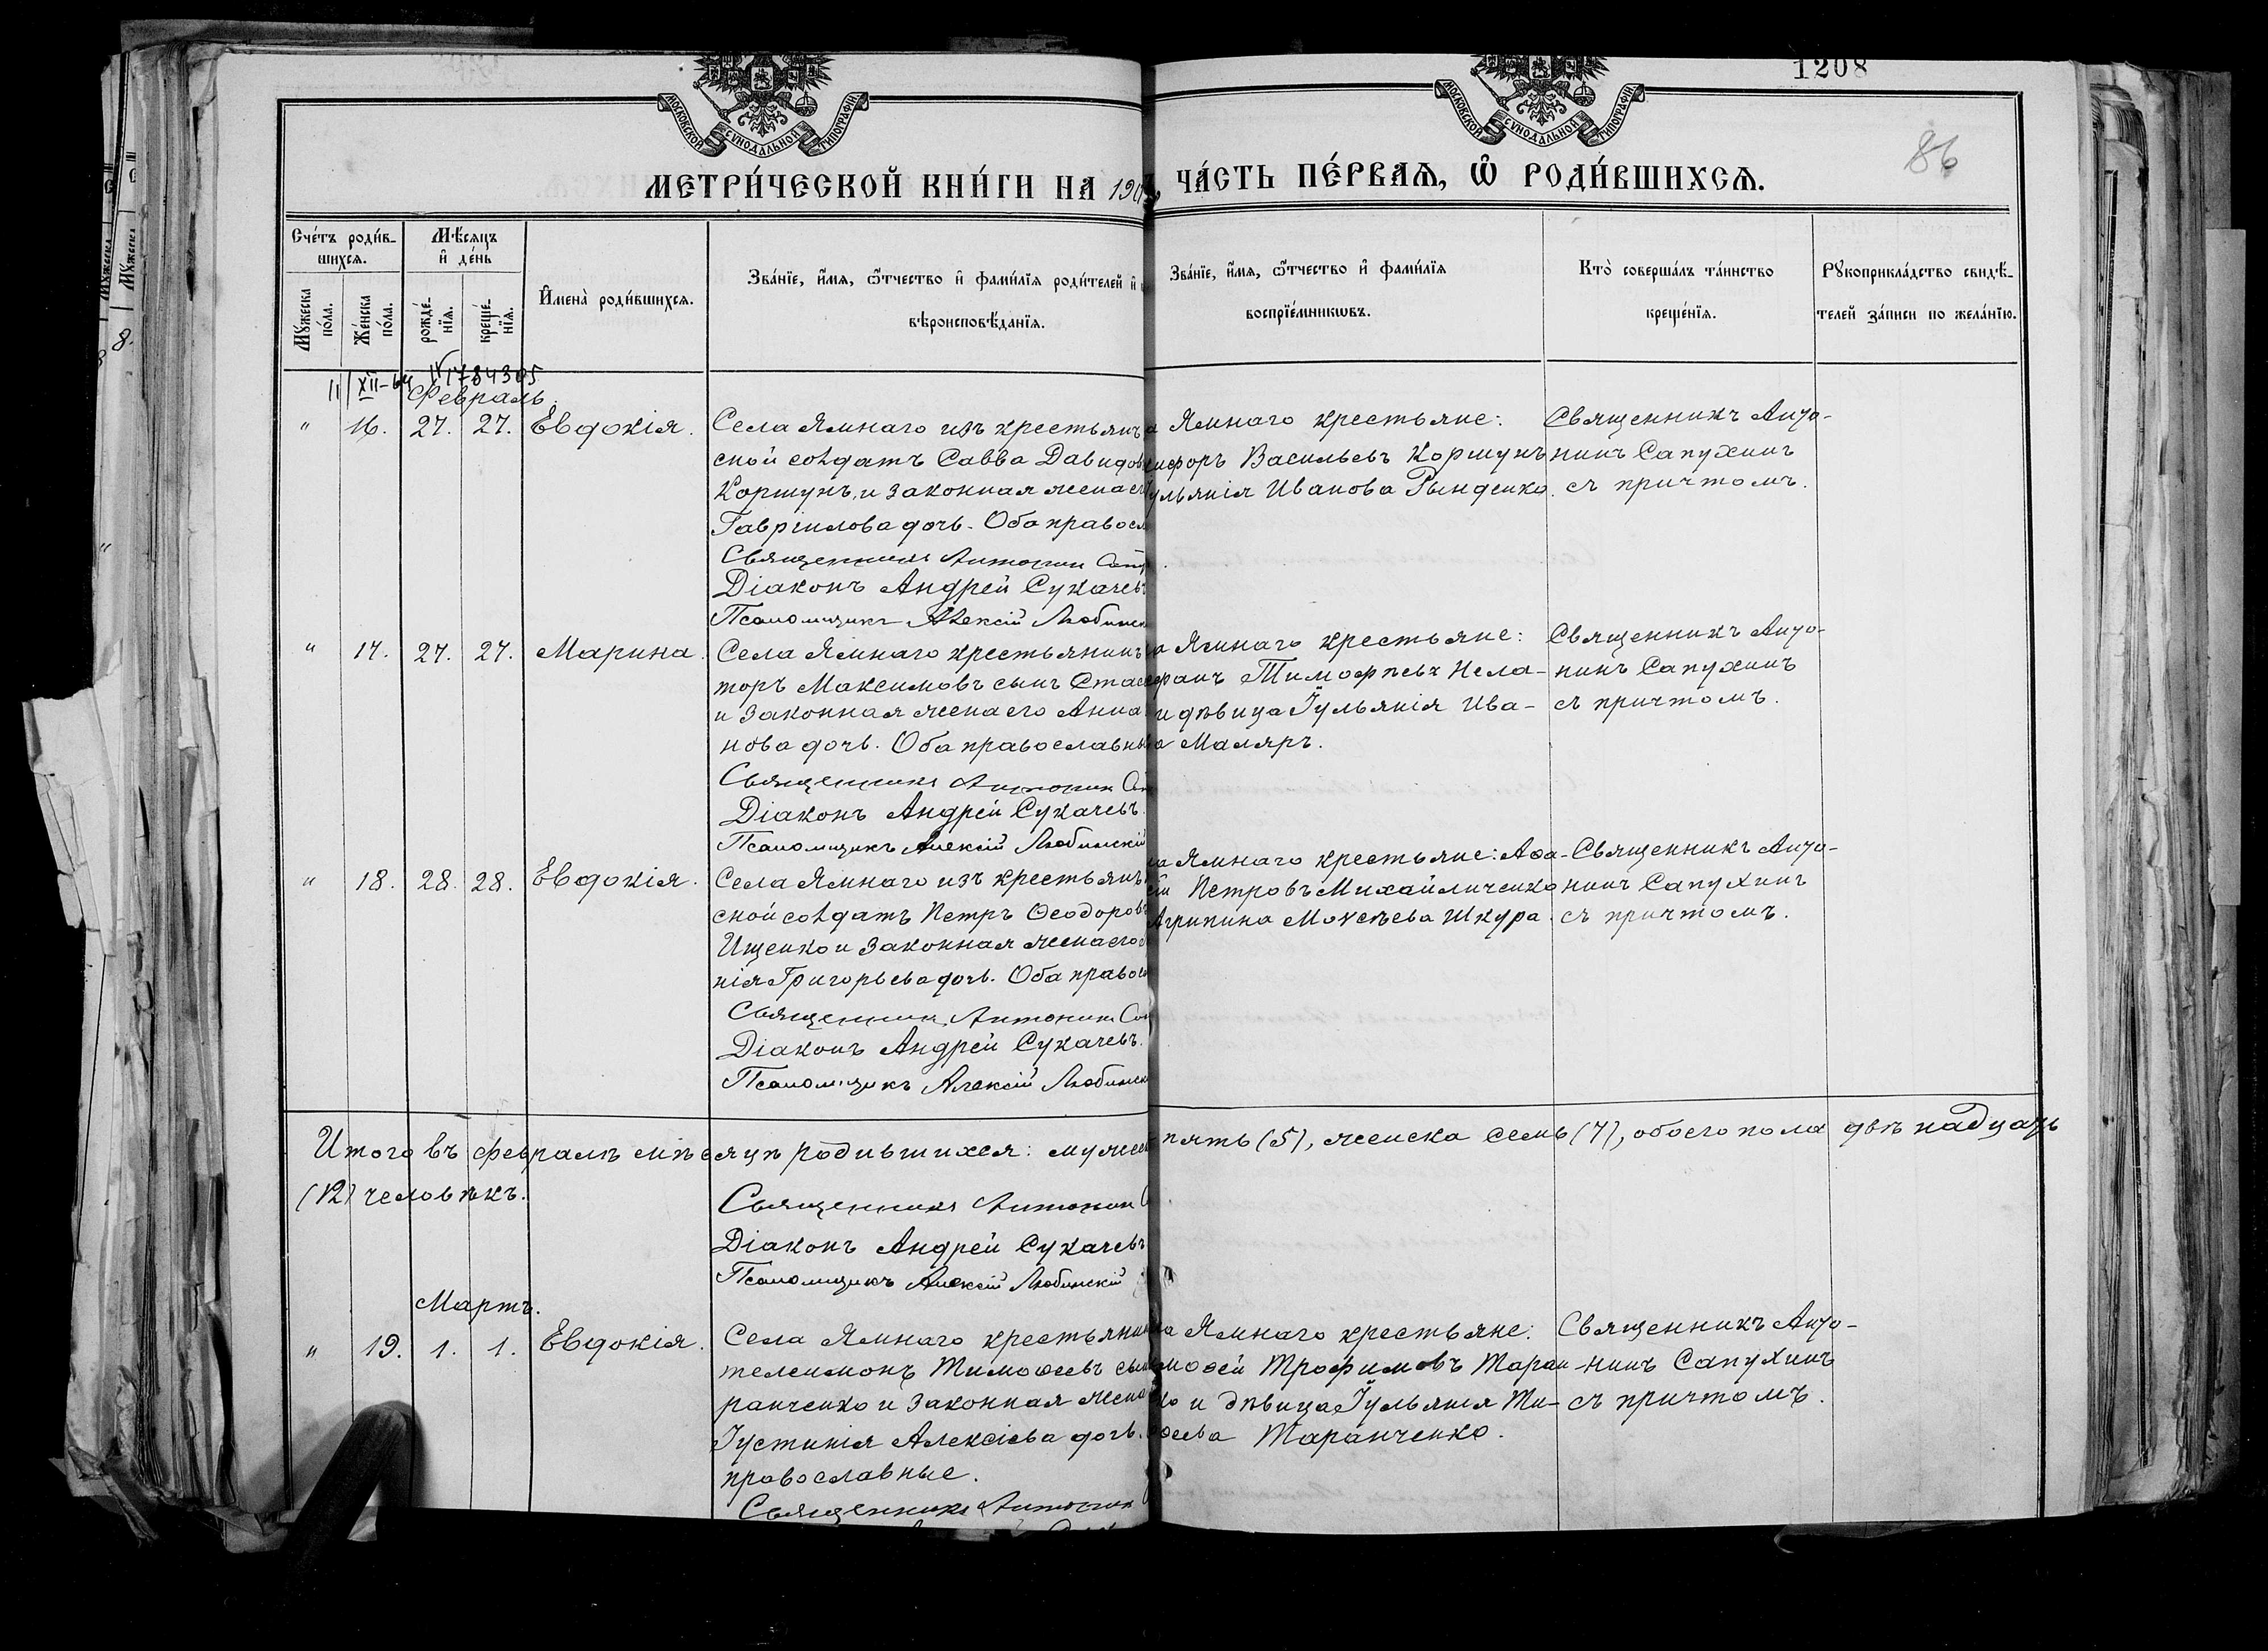 1208
86
МОСКОВСКОЙ СѴНОДАЛЬНОЙ ТИПОГРАФІИ
МОСКОВСКОЙ СѴНОДАЛЬНОЙ ТИПОГРАФІИ
МЕТРИ́ЧЕСКОЙ КНИ́ГИ НА 190
ЧА́СТЬ ПЕ́РВАѦ, Ѽ РОДИ́ВШИХСѦ.
Сче́тъ роди́в-
шихсѧ.
Мѣ́сѧцъ
и҆ де́нь
Мꙋ́жеска
по́ла.
Же́нска
по́ла.
рожде́-
нїѧ.
креще́-
нїѧ.
И҆мена̀ роди́вшихсѧ.
Зва́нїе, и҆́мѧ, ѻ҆́тчество и҆ фами́лїѧ роди́телей и҆
вѣроисповѣ́данїѧ.
Зва́нїе, и҆́мѧ, ѻ҆́тчество и҆ фами́лїѧ
воспрїе́мникѡвъ.
Кто̀ соверша́лъ та́инство
креще́нїѧ.
Рꙋкоприкла́дство свидѣ́-
телей за́писи по жела́нїю.
XII-64
Февраль.
" 16. 27. 27. Евдокія.
Села Ямнаго изъ крестьянъ
ской солдатъ Савва Давидов
Коршунъ, и законная жена ег
Гавріилова дочь. Оба правосл
Священникъ Антонин Сап
Діаконъ Андрей Сукачевъ
Псаломщикъ Алексій Любинск
а Ямнаго крестьяне:
сифоръ Васильевъ Коршунъ
ульянія Иванова Рынденко.
Священникъ Анто-
нинъ Сапухинъ
съ причтомъ.
" 17. 27. 27. Марина.
Села Ямнаго крестьянинъ
торъ Максимовъ сынъ Стас
и законная жена его Анна
нова дочь. Оба православны
Священникъ Антонин Са
Діаконъ Андрей Сукачевъ.
Псаломщикъ Алексій Любинскій
а Ямнаго крестьяне:
фанъ Тимофѣевъ Нела-
и дѣвица Іульянія Ива-
а Маляръ.
Священникъ Анто-
нинъ Сапухинъ
съ причтомъ.
" 18. 28. 28. Евдокія.
Села Ямнаго изъ крестьянъ
ской солдатъ Петръ Ѳеодоровъ
Ищенко и законная жена его
нія Григорьева дочь. Оба правосл
Священник Антонин Сап
Діаконъ Андрей Сукачевъ.
Псаломщикъ Алексій Любинск
ла Ямнаго крестьяне: Аѳа-
сій Петровъ Михайличенко
Агрипина Моѵсѣева Шкура.
Священникъ Анто-
нинъ Сапухинъ
съ причтомъ.
Итого въ февралѣ мѣсяцѣ родившихся: мужеск пять (5), женска семь (7), обоего пола двѣнадцать
(12) человѣкъ.
Священникъ Антонин С
Діаконъ Андрей Сукачевъ
Псаломщикъ Алексій Любинскій
Мартъ.
" 19. 1. 1. Евдокія.
Села Ямнаго крестьянин
телеимонъ Тимоѳеевъ сын
ранченко и законная жена
Іустинія Алексіева дочь.
православные.
Священникъ Антонин
ла Ямнаго крестьяне:
моѳей Трофимовъ Таран
ко и дѣвица Іульянія Ти-
ѳеева Таранченко.
Священникъ Анто-
нинъ Сапухинъ
съ причтомъ.